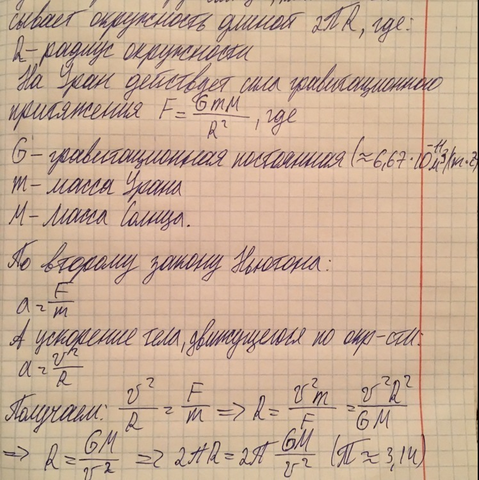 сывает окружность длиной 2ПR, где:
R-радиус окружности
На Уран действует сила гравитационного
притяжения F = GmM/R², где
G - гравитационная постоянная (≈6,67·10⁻¹¹м³/
m - масса Урана
M - масса Солнца.
По второму закону Ньютона:
a = F/m
А ускорение тела, движущегося по окр-сти:
a = v²/R
Получаем: v²/R = F/m => R = v²m/F = v²R²/GM
=> R = GM/v² => 2ПR = 2П GM/v² (П ≈ 3,14)